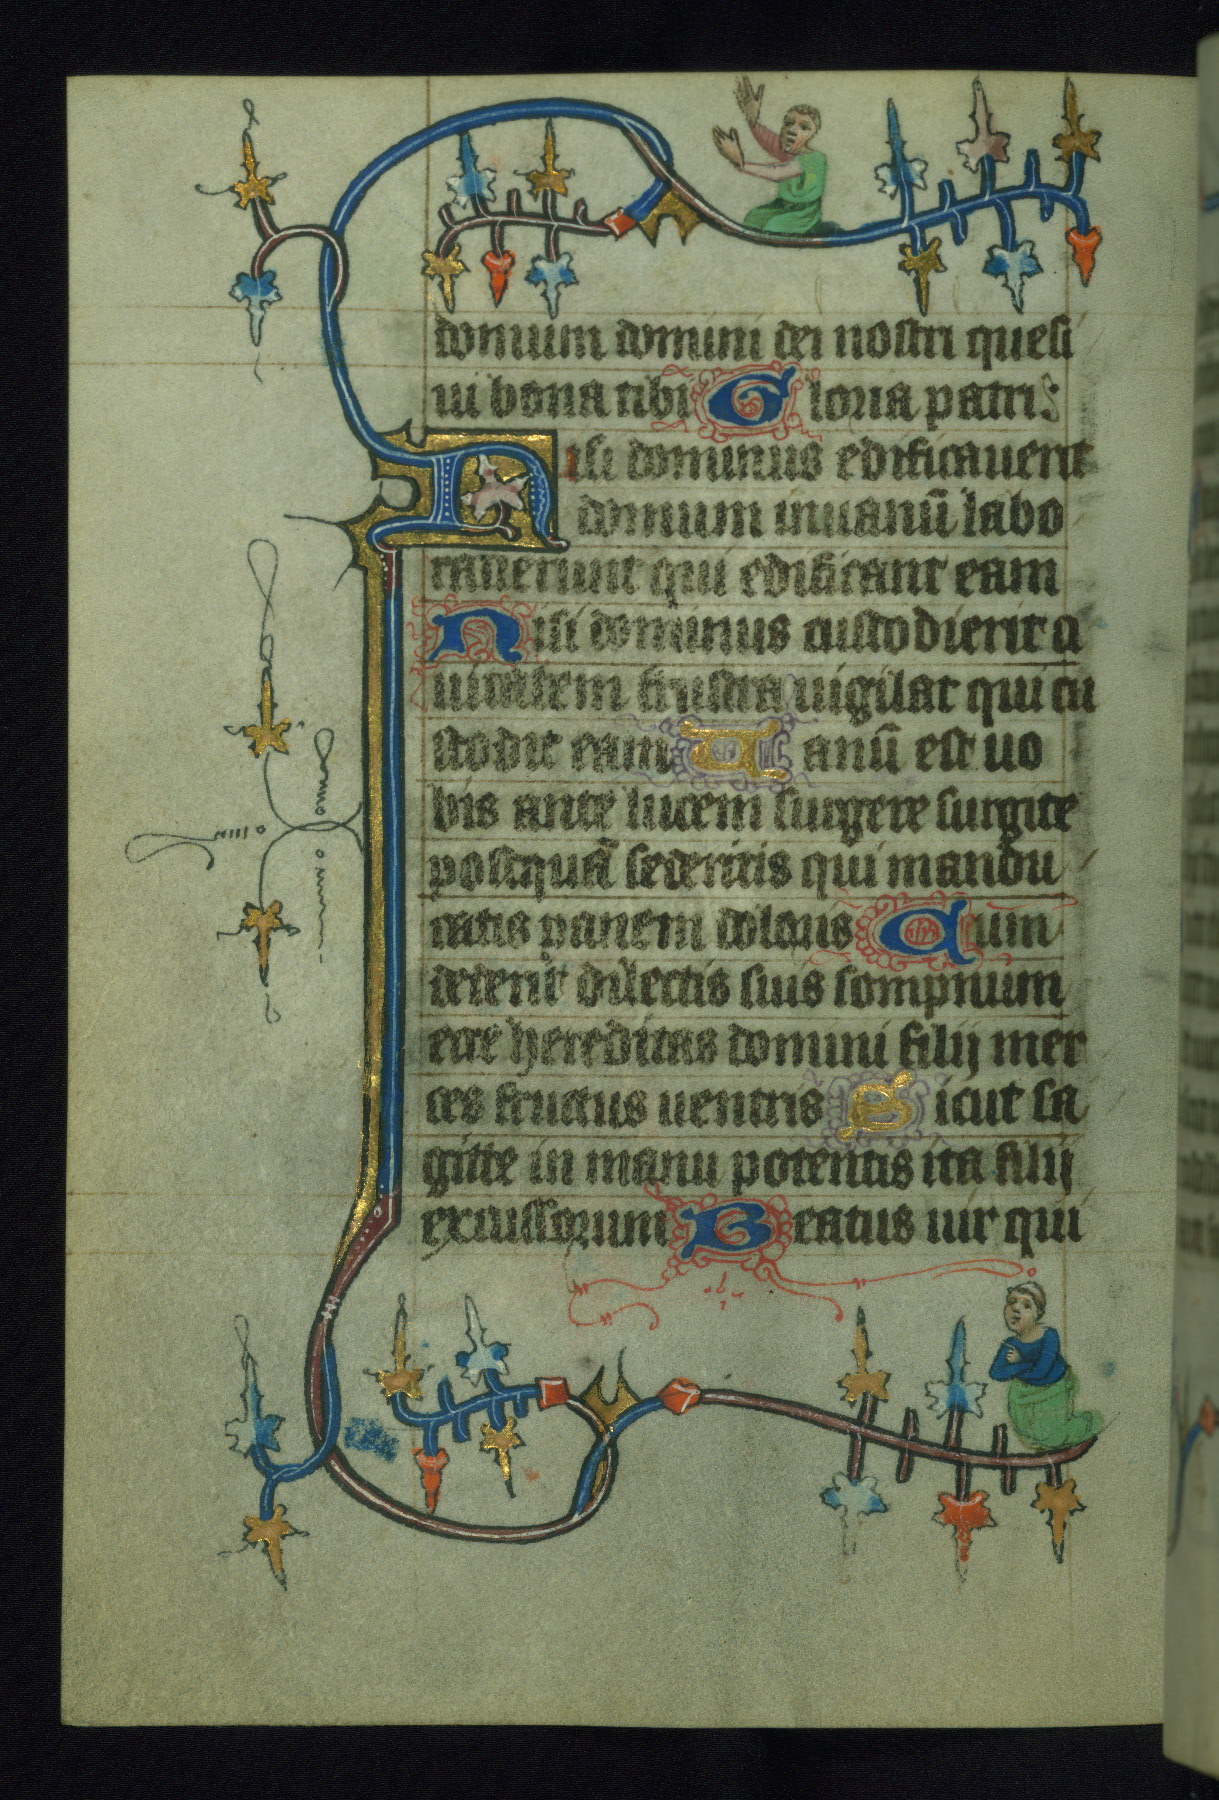 domum domini dei nostri quesi
ui bona tibi Gloria patri:
Nisi dominus edificauerit
domum inuanū labo
rauerunt qui edificant eam
Nisi dominus custodierit ci
uitatem frustra uigilat qui cu
stodit eam Uanū est uo
bis ante lucem surgere surgite
postquā sederitis qui mandu
catis panem doloris Cum
dederit dilectis suis sompnum
ecce hereditas domini filij mer
ces fructus uentris Sicut sa
gitte in manu potentis ita filij
excussorum Beatus uir qui